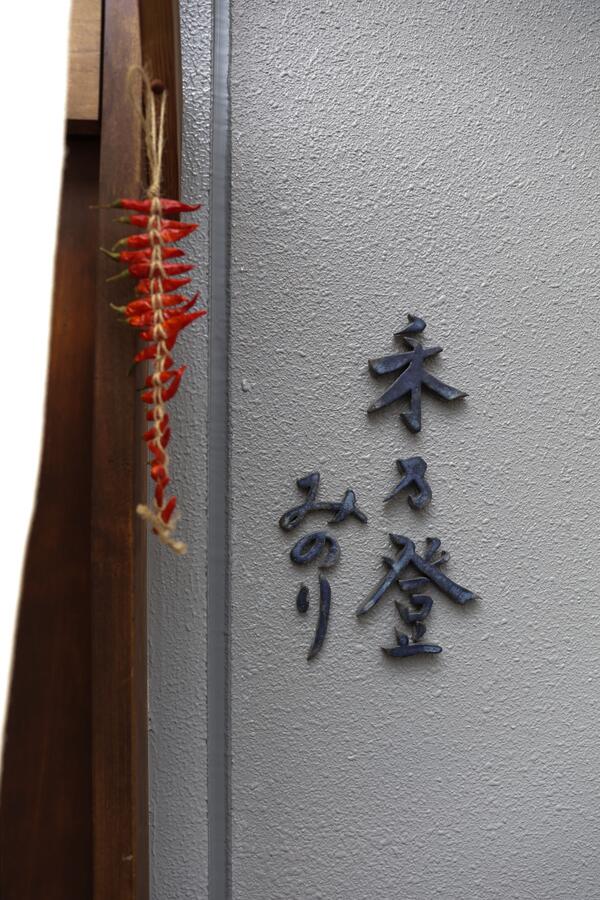 禾乃登
みのり